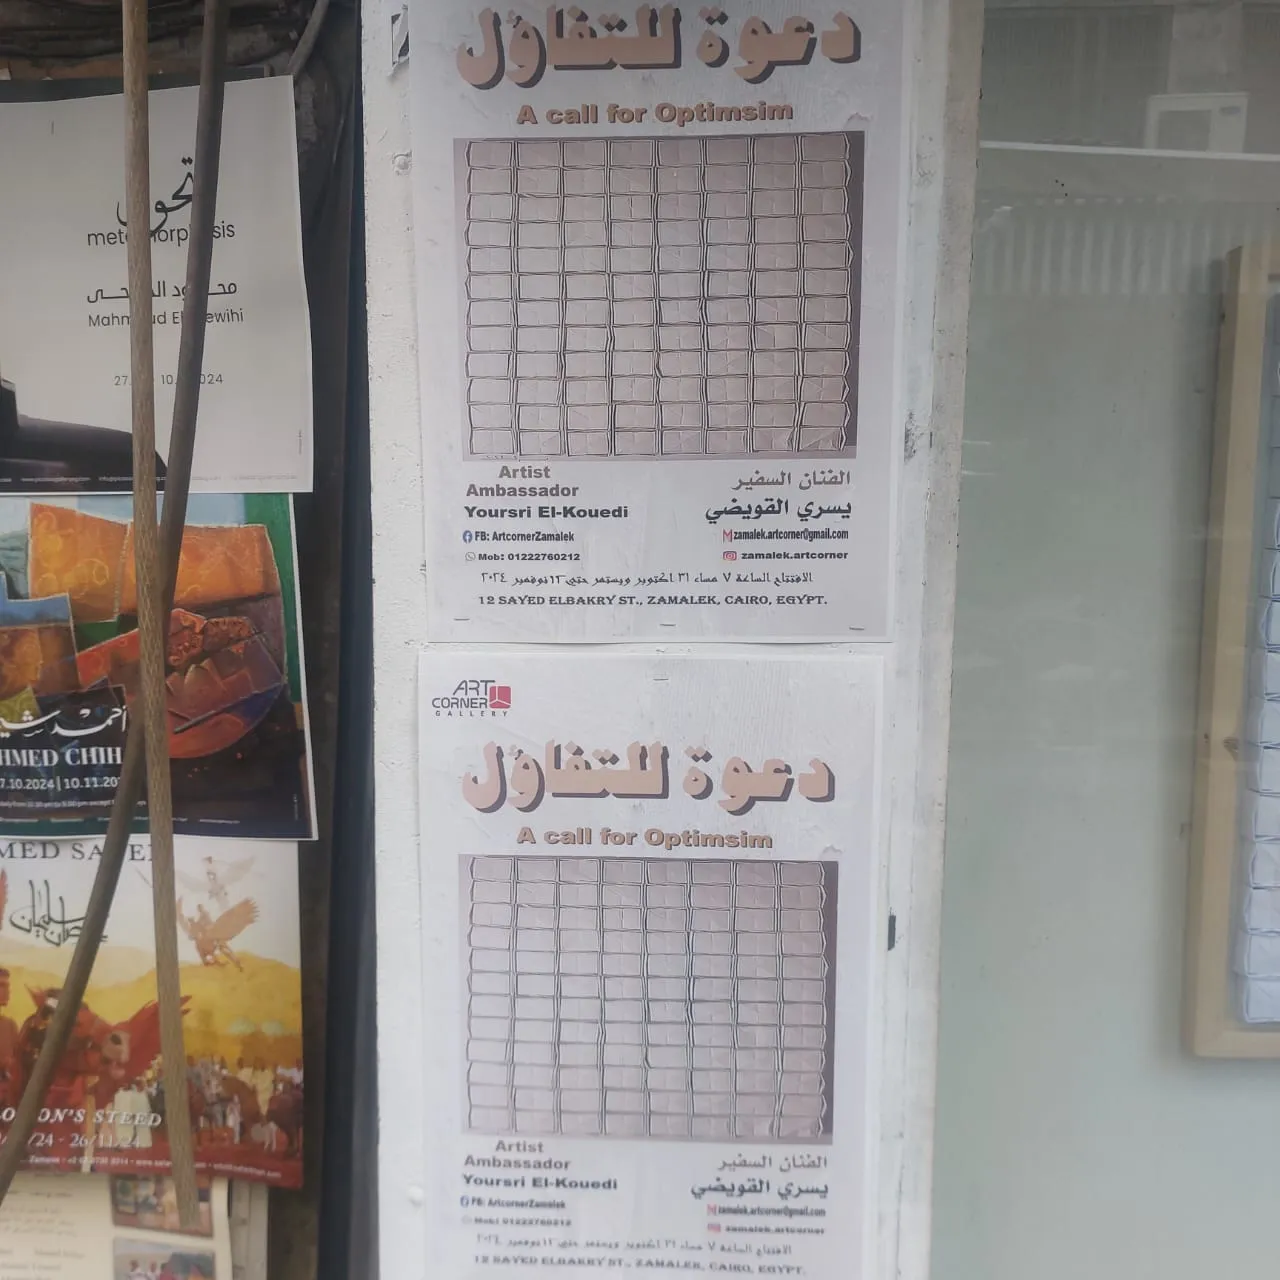 metamorphosis
27.
10.
2024
دعوة للتفاؤل
A call for Optimsim
Artist
Ambassador
Yoursri El-Kouedi
الفنان السفير
يسري القويضي
FB: ArtcornerZamalek
zamalek.artcorner@gmail.com
Mob: 01222760212
zamalek.artcorner
الافتتاح الساعة ٧ مساء ٣١ اكتوبر ويستمر حتى ١٢ نوفمبر ٢٠٢٤
12 SAYED ELBAKRY ST., ZAMALEK, CAIRO, EGYPT.
HMED CHIH
7.10.2024 | 10.11.20
MED SA
رمضان سليمان
ON'S STEED
/24 - 26/11/24
ART
CORNER
GALLERY
دعوة للتفاؤل
A call for Optimsim
Artist
Ambassador
Yoursri El-Kouedi
الفنان السفير
يسري القويضي
FB: ArtcornerZamalek
zamalek.artcorner@gmail.com
Mob: 01222760212
zamalek.artcorner
الافتتاح الساعة ٧ مساء ٣١ اكتوبر ويستمر حتى ١٢ نوفمبر ٢٠٢٤
12 SAYED ELBAKRY ST., ZAMALEK, CAIRO, EGYPT.